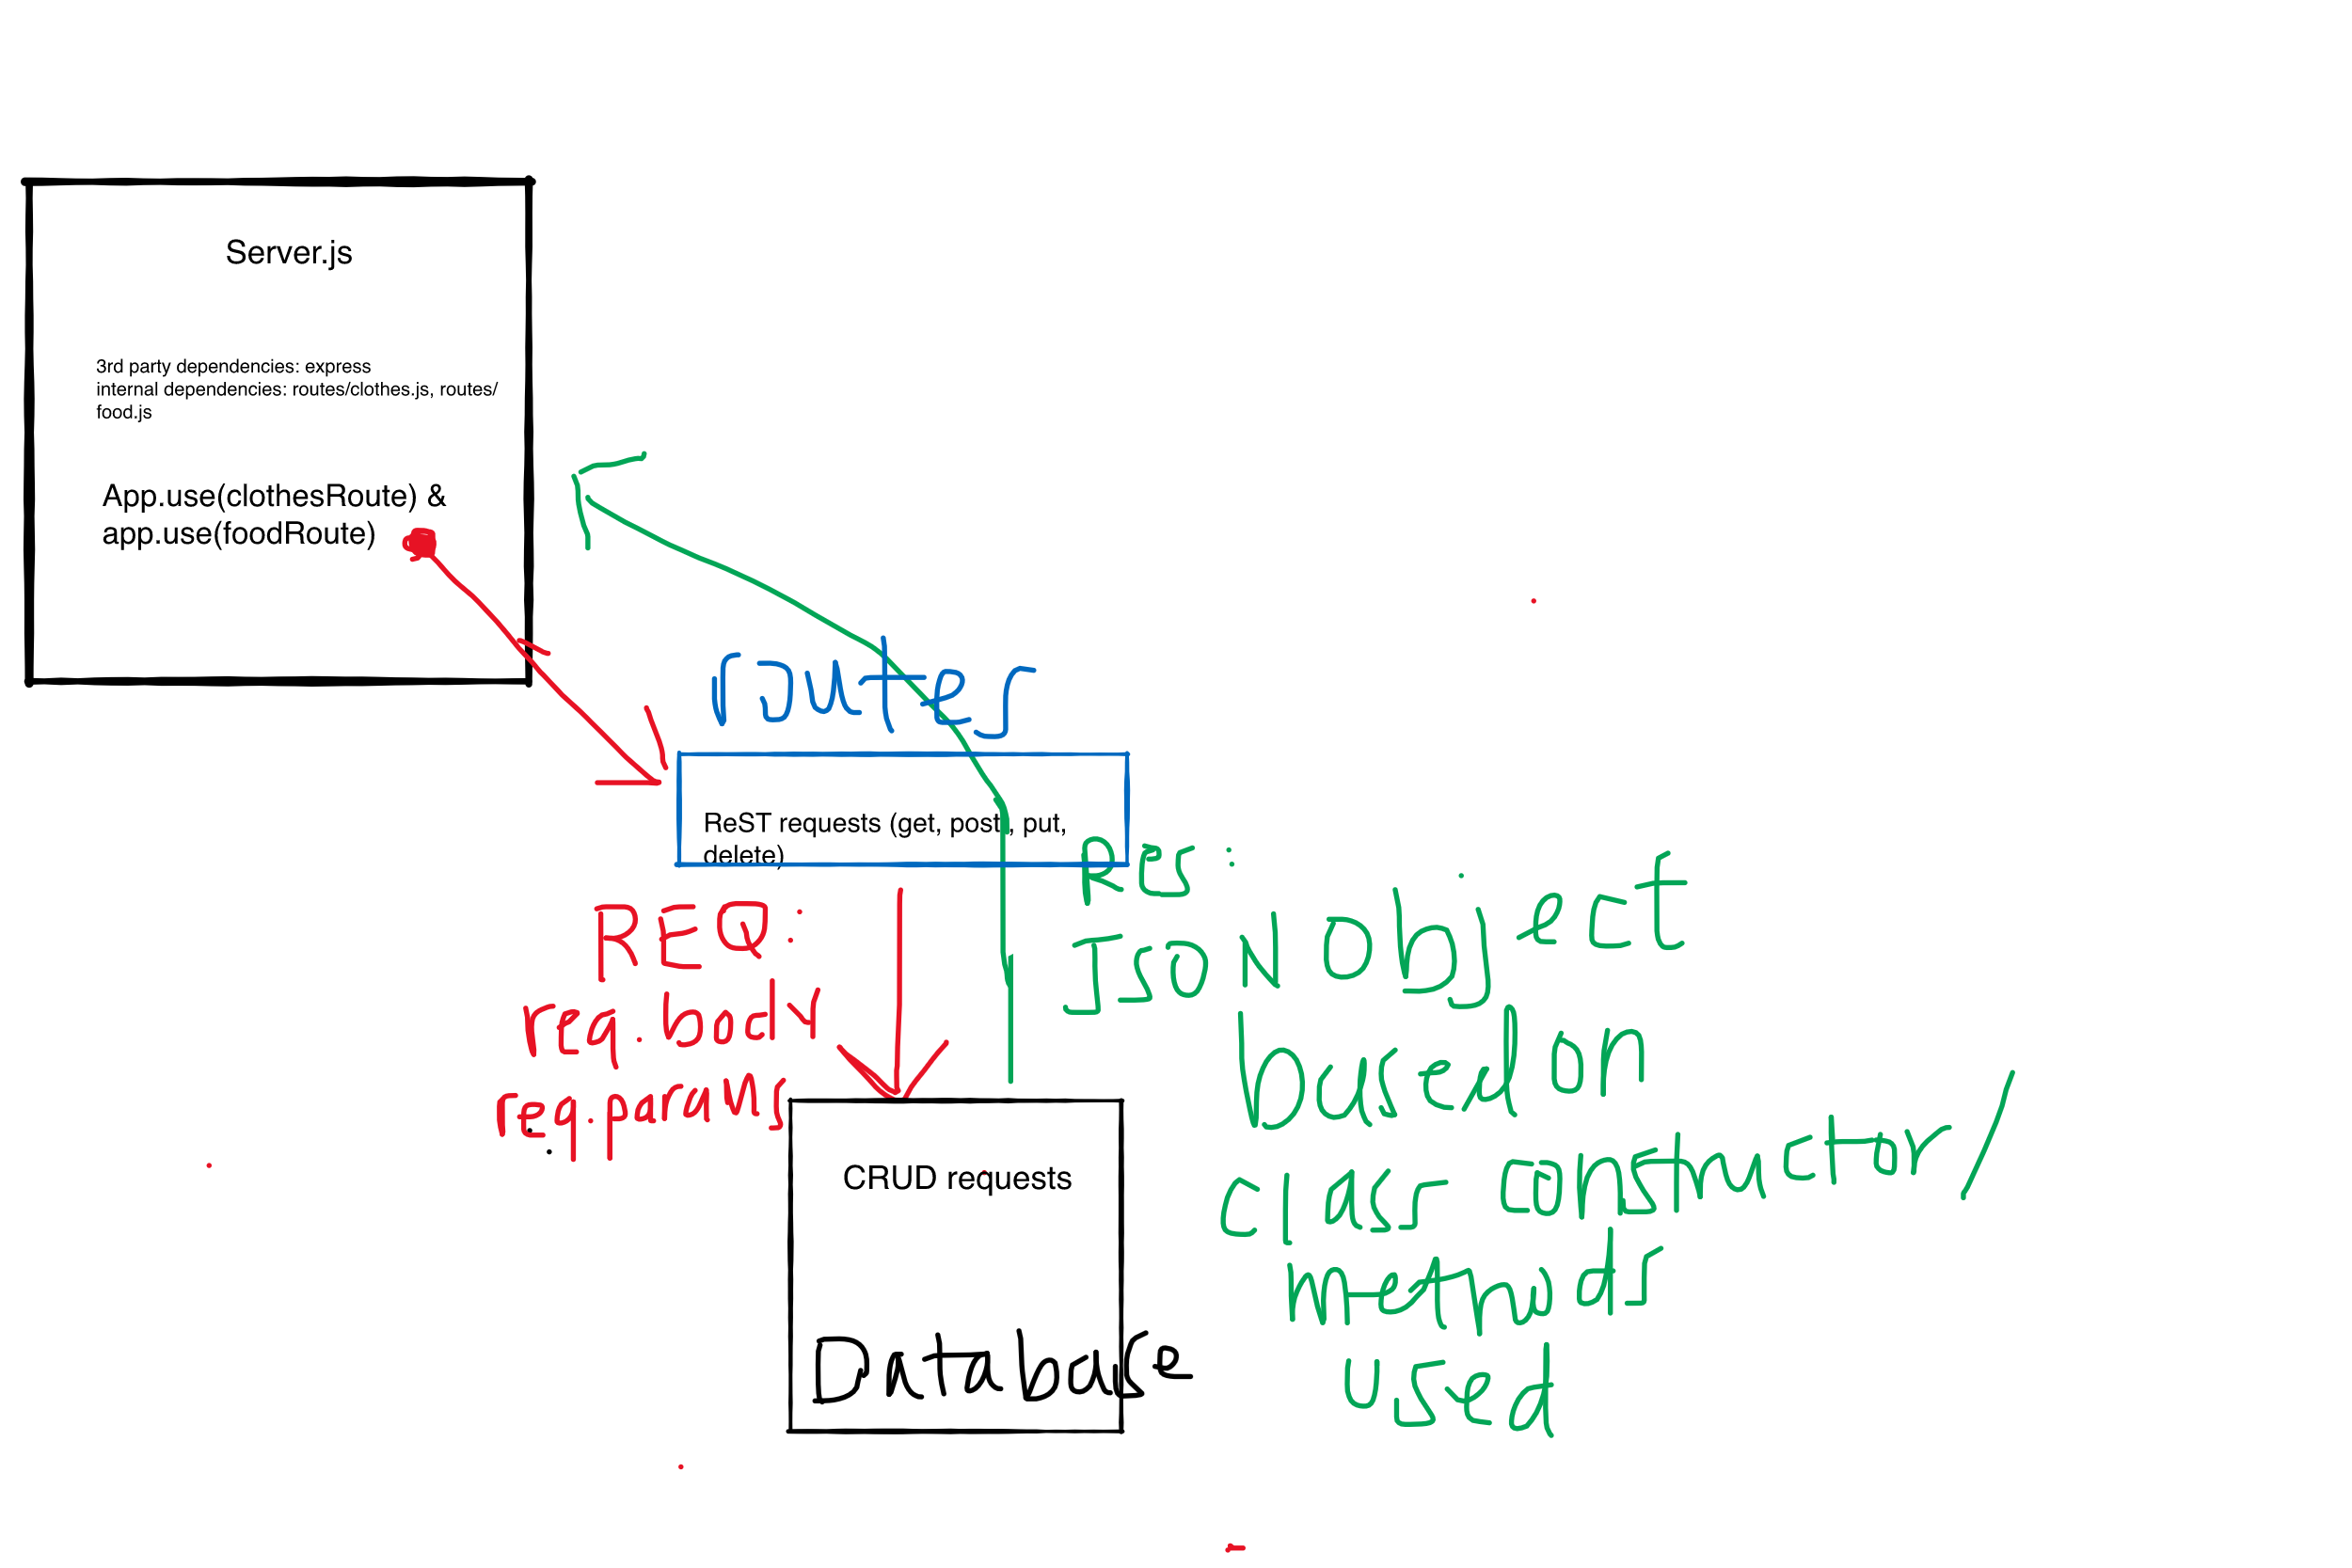 Server.js
3rd party dependencies: express
internal dependencies: routes/clothes.js, routes/
food.js
App.use(clothesRoute) &
app.use(foodRoute)
routes
ReST requests (get, post, put,
delete)
REQ:
req.body
req.params
Res:
JSON Object
based on
class constructor/
methods
used
CRUD requests
Database